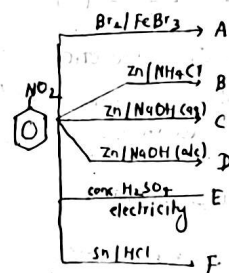 Br2/FeBr3 A
Zn/NH4Cl B
NO2
Zn/NaOH(aq) C
Zn/NaOH(alc) D
conc. H2SO4 E
electricity
Sn/HCl F